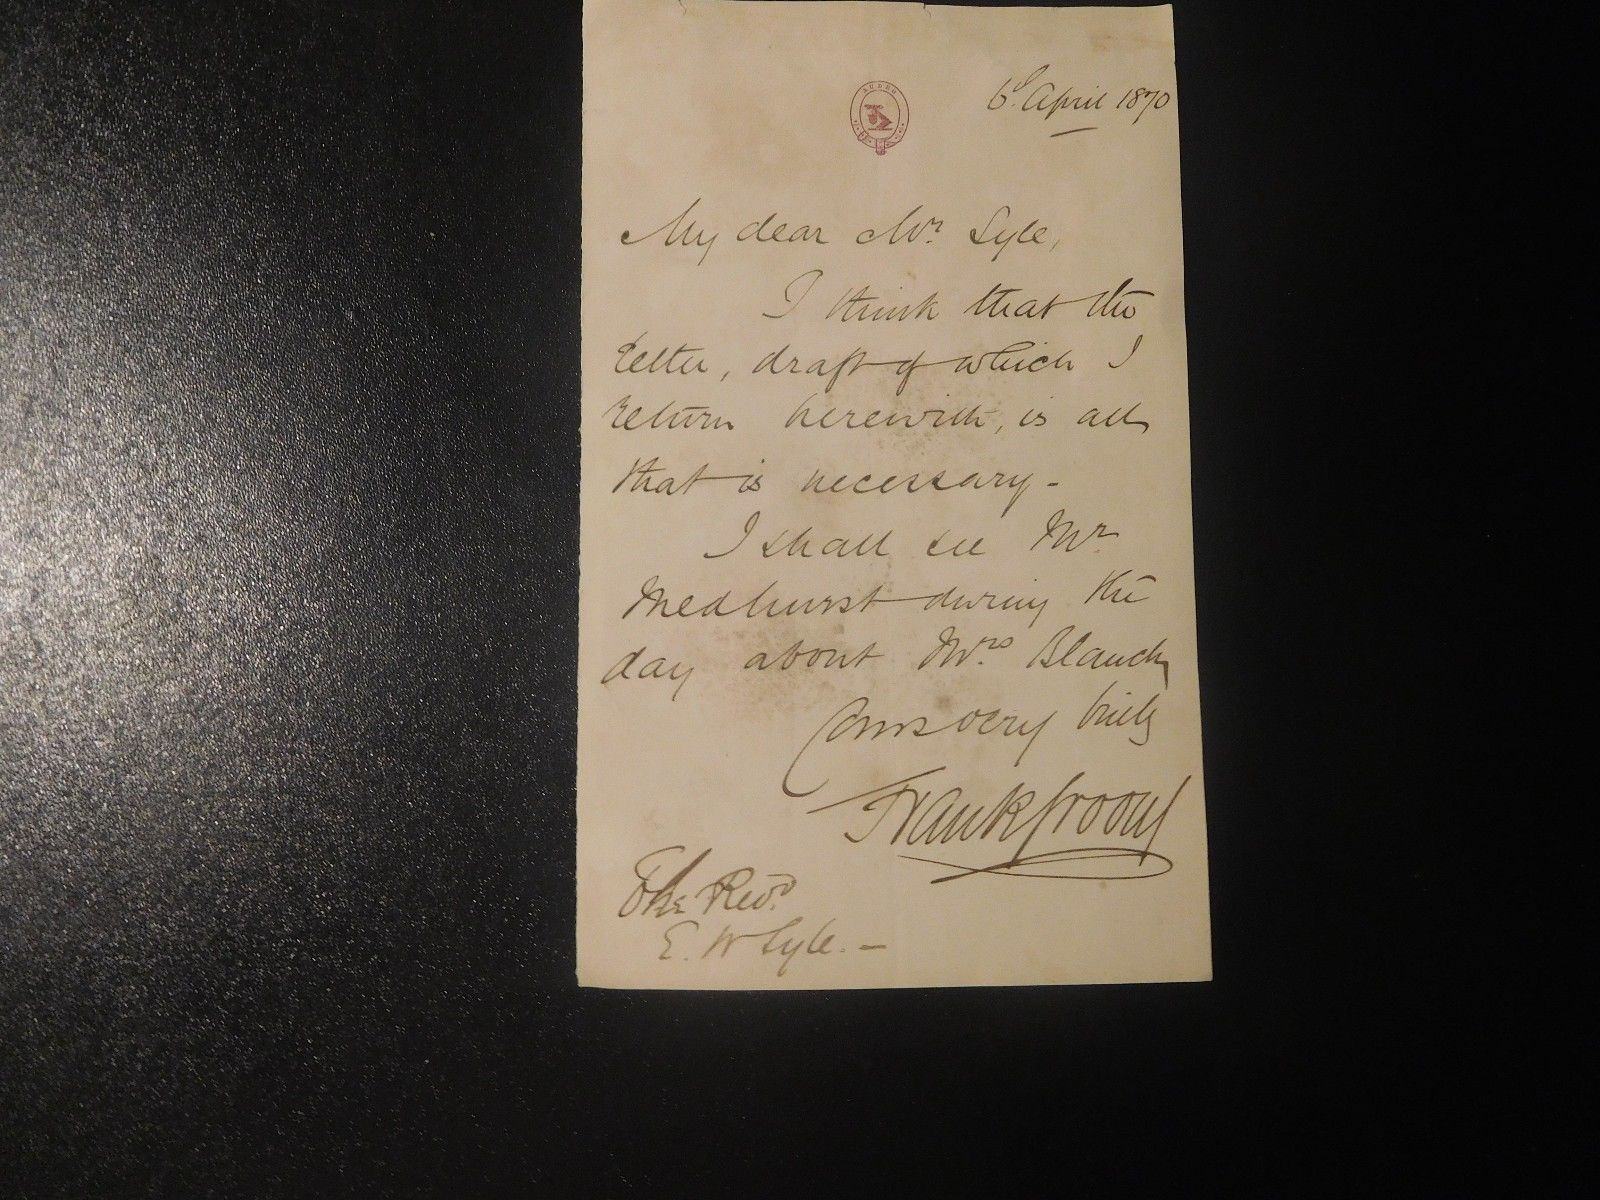 AUDEO
6th April 1870
My dear Mr. Syle,
I think that the
letter, draft of which I
return herewith, is all
that is necessary -
I shall see Mr
Medhurst during the
day about Mrs.
Yours very truly
Frank
The Revd.
E. W Syle. -